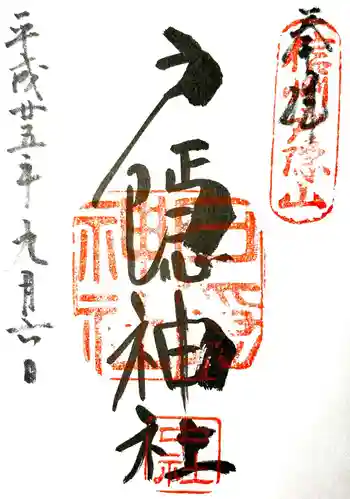 奉拝
信州戸隠山
戸隠神社
平成廿五年九月六日